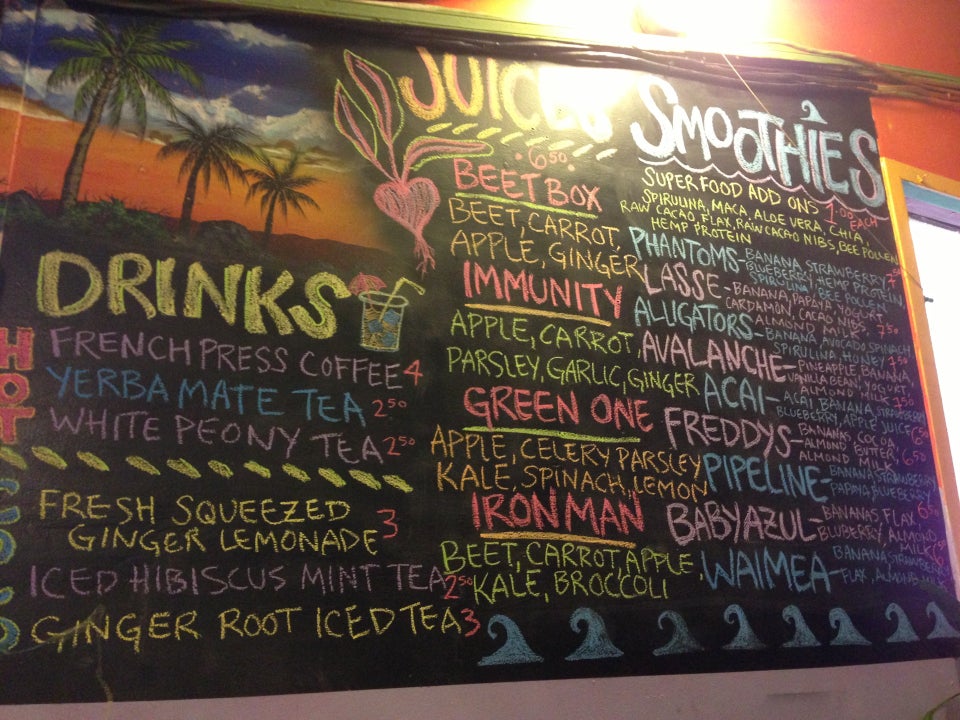 DRINKS
HOT
FRENCH PRESS COFFEE 4
YERBA MATE TEA 2.50
WHITE PEONY TEA 2.50
FRESH SQUEEZED
GINGER LEMONADE 3
ICED HIBISCUS MINT TEA 2.50
GINGER ROOT ICED TEA 3
JUICES
6.50
BEET BOX
BEET, CARROT,
APPLE, GINGER
IMMUNITY
APPLE, CARROT,
PARSLEY, GARLIC, GINGER
GREEN ONE
APPLE, CELERY PARSLEY
KALE, SPINACH, LEMON
IRON MAN
BEET, CARROT, APPLE,
KALE, BROCCOLI
SMOOTHIES
SUPER FOOD ADD ONS 1.00 EACH
SPIRULINA, MACA, ALOE VERA, CHIA,
RAW CACAO, FLAX, RAW CACAO NIBS, BEE POLLEN
HEMP PROTEIN
PHANTOMS - BANANA, STRAWBERRY
BLUEBERRY, HEMP PROTEIN,
SPIRULINA, BEE POLLEN
LASSE - BANANA, PAPAYA, YOGURT
CARDAMON, CACAO NIBS,
ALMOND MILK 7.50
ALLIGATORS - BANANA, AVOCADO, SPINACH
SPIRULINA, HONEY
AVALANCHE - PINEAPPLE, BANANA,
VANILLA BEAN, YOGURT
ALMOND MILK 7.50
ACAI - ACAI, BANANA, STRAWBERRY
BLUEBERRY, APPLE JUICE 6.50
FREDDYS - BANANAS, COCOA,
ALMOND BUTTER,
ALMOND MILK 6.50
PIPELINE - BANANA, STRAWBERRY
PAPAYA, BLUEBERRY
6.50
BABY AZUL - BANANAS, FLAX,
BLUBERRY, ALMOND
MILK
WAIMEA - BANANA, STRAWBERRY
FLAX, ALMOND MILK